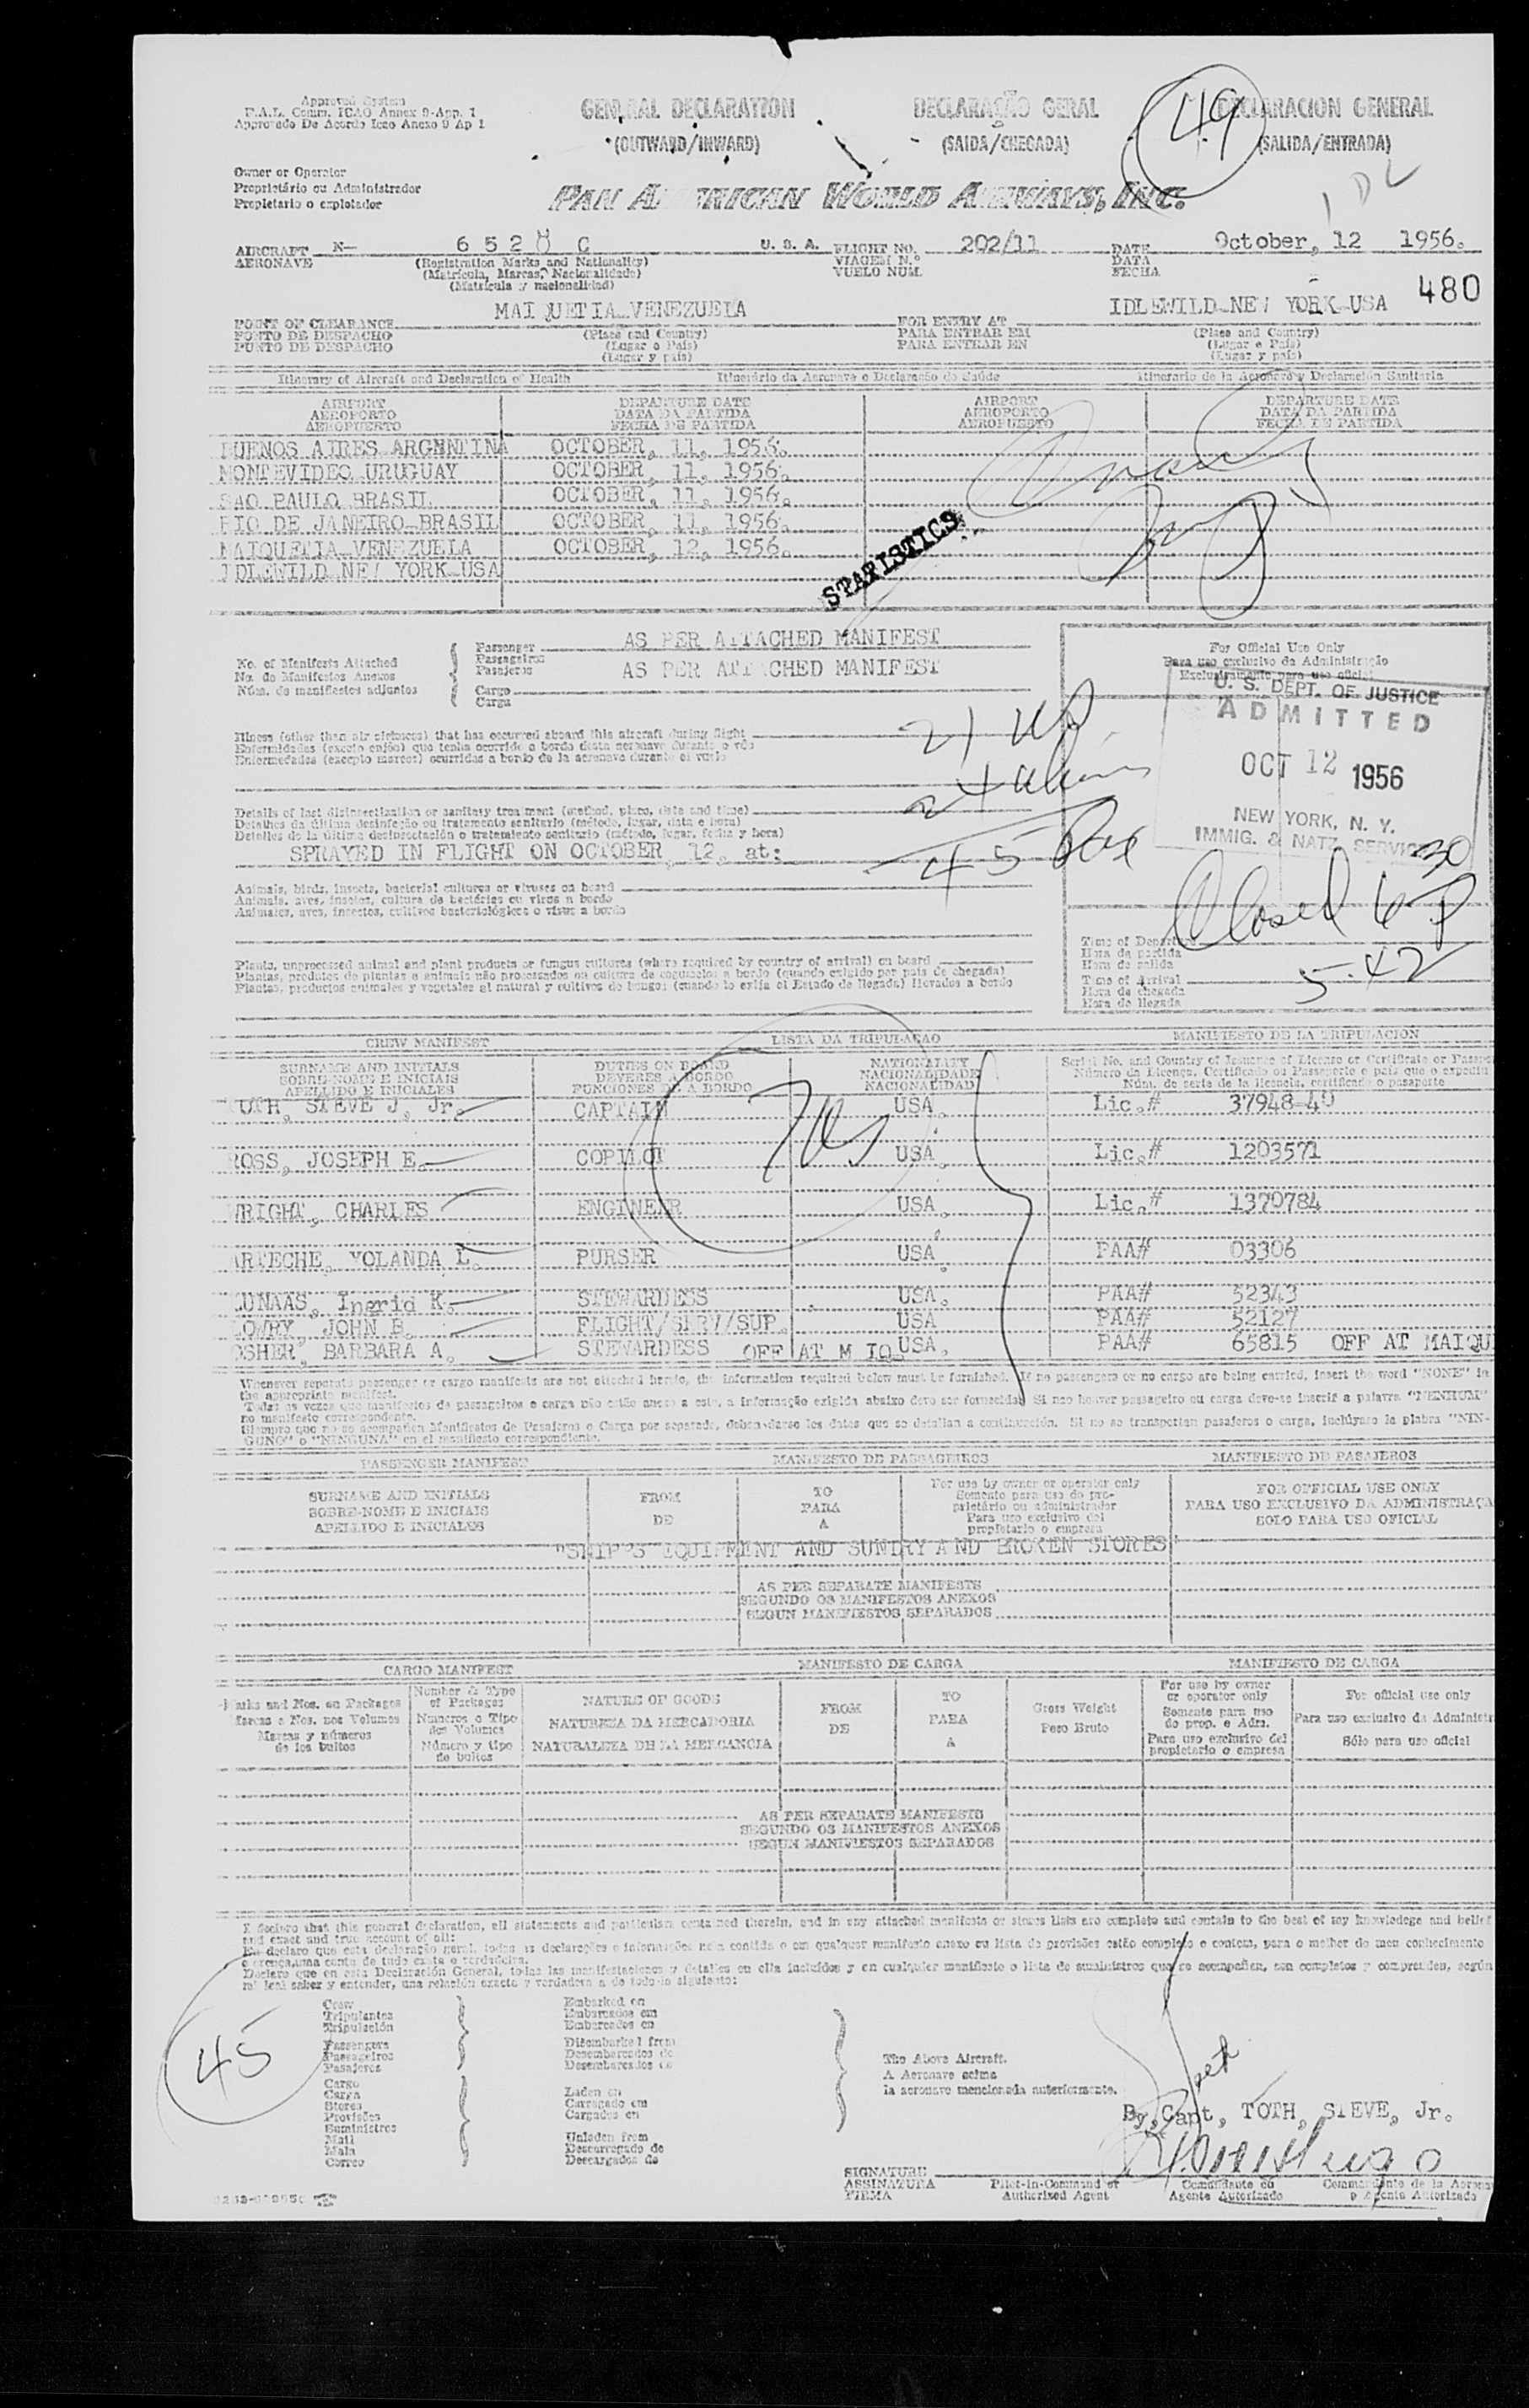 Approved System
F.A.L. Comm. ICAO Annex 9-App. 1
Approvado De Acordo Icao Anexo 9 Ap 1
GENERAL DECLARATION
(OUTWARD/INWARD)
DECLARAÇÃO GERAL
(SAIDA/CHEGADA)
DECLARACION GENERAL
(SALIDA/ENTRADA)
49
Owner or Operator
Proprietário ou Administrador
Propietario o explotador
PAN AMERICAN WORLD AIRWAYS, INC.
AIRCRAFT N— 6 5 2 8 C U. S. A. FLIGHT NO. 202/11 DATE October, 12 1956.
AERONAVE (Registration Marks and Nationality) VIAGEM N.º DATA
(Matrícula, Marcas, Nacionalidade) VUELO NUM. FECHA
(Matrícula y nacionalidad)
480
MAIQUETIA-VENEZUELA IDLEWILD-NEW YORK-USA
POINT OF CLEARANCE (Place and Country) FOR ENTRY AT (Place and Country)
PONTO DE DESPACHO (Lugar e País) PARA ENTRAR EM (Lugar e País)
PUNTO DE DESPACHO (Lugar y país) PARA ENTRAR EN (Lugar y país)
Itinerary of Aircraft and Declaration of Health Itinerário da Aeronave e Declaração de Saúde Itinerario de la Aeronave y Declaración Sanitaria
AIRPORT DEPARTURE DATE AIRPORT DEPARTURE DATE
AEROPORTO DATA DA PARTIDA AEROPORTO DATA DA PARTIDA
AEROPUERTO FECHA DE PARTIDA AEROPUERTO FECHA DE PARTIDA
BUENOS AIRES ARGENTINA OCTOBER, 11, 1956.
MONTEVIDEO URUGUAY OCTOBER, 11, 1956.
SAO PAULO BRASIL OCTOBER, 11, 1956.
RIO DE JANEIRO-BRASIL OCTOBER, 11, 1956.
MAIQUETIA-VENEZUELA OCTOBER, 12, 1956.
IDLEWILD-NEW YORK-USA
STATISTICS
No. of Manifests Attached
No. de Manifestos Anexos
Núm. de manifiestos adjuntos
Passenger AS PER ATTACHED MANIFEST
Passageiros
Pasajeros AS PER ATTACHED MANIFEST
Cargo
Carga
For Official Use Only
Para uso exclusivo da Administração
Exclusivamente para uso oficial
U. S. DEPT. OF JUSTICE
ADMITTED
OCT 12 1956
NEW YORK, N. Y.
IMMIG. & NATZ. SERVICE
Illness (other than air sickness) that has occurred aboard this aircraft during flight
Enfermidades (exceto enjôo) que tenha ocorrido a bordo desta aeronave durante o vôo
Enfermedades (excepto mareos) ocurridas a bordo de la aeronave durante el vuelo
21
24
45 Pax
Details of last disinsectization or sanitary treatment (method, place, date and time)
Detalhes da última desinfeção ou tratamento sanitario (método, lugar, data e hora)
Detalles de la última desinsectación o tratamiento sanitario (método, lugar, fecha y hora)
SPRAYED IN FLIGHT ON OCTOBER, 12, at:
Animals, birds, insects, bacterial cultures or viruses on board
Animais, aves, insetos, cultura de bactérias ou virus a bordo
Animales, aves, insectos, cultivos bacteriológicos o virus a bordo
Closed 6 30 P
Time of Departure
Hora da partida
Hora de salida
Time of Arrival 5:42
Hora da chegada
Hora de llegada
Plants, unprocessed animal and plant products or fungus cultures (where required by country of arrival) on board
Plantas, produtos de plantas e animais não processados ou cultura de cogumelos a bordo (quando exigido por país de chegada)
Plantas, productos animales y vegetales al natural y cultivos de hongos (cuando lo exija el Estado de llegada) llevados a bordo
CREW MANIFEST LISTA DA TRIPULAÇAO MANIFIESTO DE LA TRIPULACION
SURNAME AND INITIALS DUTIES ON BOARD NATIONALITY Serial No. and Country of Issuance of License or Certificate or Passpo
SOBRE-NOME E INICIAIS DEVERES A BORDO NACIONALIDADE Número da Licença, Certificado ou Passaporte e país que o expediu
APELLIDO E INICIALES FUNCIONES A BORDO NACIONALIDAD Núm. de serie de la licencia, certificado o pasaporte
TOTH, STEVE J. Jr. CAPTAIN USA. Lic.# 37948-40
ROSS, JOSEPH E. COPILOT USA. Lic.# 1203571
WRIGHT, CHARLES ENGINEER USA. Lic.# 1370784
ARTECHE, YOLANDA L. PURSER USA. PAA# 03306
LUNAAS, Ingrid K. STEWARDESS USA. PAA# 52343
LOWRY, JOHN B. FLIGHT/SERV/SUP. USA PAA# 52127
OSHER, BARBARA A. STEWARDESS OFF AT M IQ USA. PAA# 65815 OFF AT MAIQU
Whenever separate passenger or cargo manifests are not attached hereto, the information required below must be furnished. If no passengers or no cargo are being carried, insert the word "NONE" in
the appropriate manifest.
Todas as vezes que manifestos de passageiros e carga não estão anexo a este, a informação exigida abaixo deve ser fornecida. Si nao houver passageiro ou carga deve-se inserir a palavra "NENHUM"
no manifesto correspondente.
Siempre que no se acompañen Manifiestos de Pasajeros o Carga por separado, deben darse los datos que se detallan a continuación. Si no se transportan pasajeros o carga, inclúyase la plabra "NIN-
GUNO" o "NINGUNA" en el manifiesto correspondiente.
PASSENGER MANIFEST MANIFESTO DE PASSAGEIROS MANIFIESTO DE PASAJEROS
SURNAME AND INITIALS FROM TO For use by owner or operator only FOR OFFICIAL USE ONLY
SOBRE-NOME E INICIAIS DE PARA Somente para uso do pro- PARA USO EXCLUSIVO DA ADMINISTRAÇA
APELLIDO E INICIALES A prietário ou administrador SOLO PARA USO OFICIAL
Para uso exclusivo del
propietario o empresa
"SHIP'S EQUIPMENT AND SUNDRY AND BROKEN STORES"
AS PER SEPARATE MANIFESTS
SEGUNDO OS MANIFESTOS ANEXOS
SEGUN MANIFIESTOS SEPARADOS
CARGO MANIFEST MANIFESTO DE CARGA MANIFIESTO DE CARGA
Marks and Nos. on Packages Number & Type of Packages NATURE OF GOODS FROM TO Gross Weight For use by owner or operator only For official use only
Marcas e Nos. nos Volumes Numeros e Tipo dos Volumes NATUREZA DA MERCADORIA DE PARA Peso Bruto Somente para uso do prop. e Adm. Para uso exclusivo da Administr
Marcas y números de los bultos Número y tipo de bultos NATURALEZA DE LA MERCANCIA A Para uso exclusivo del propietario o empresa Sólo para uso oficial
AS PER SEPARATE MANIFESTS
SEGUNDO OS MANIFESTOS ANEXOS
SEGUN MANIFIESTOS SEPARADOS
I declare that this general declaration, all statements and particulars contained therein, and in any attached manifests or stores lists are complete and contain to the best of my knowledge and belief
and exact and true account of all:
Eu declaro que esta declaração geral, todas as declarações e informações nela contida o em qualquer manifesto anexo ou lista de provisões estão completo e contem, para o melhor do meu conhecimento
e crença, uma conta de tudo exata e verdadeira.
Declaro que en esta Declaración General, todas las manifestaciones y detalles en ella incluídos y en cualquier manifiesto o lista de suministros que se acompañen, son completos y comprenden, según
mi leal saber y entender, una relación exacta y verdadera de todo lo siguiente:
45
Crew
Tripulantes
Tripulación
Passengers
Passageiros
Pasajeros
Cargo
Carga
Stores
Provisões
Suministros
Mail
Mala
Correo
Embarked on
Embarcados em
Embarcados en
Disembarked from
Desembarcados de
Desembarcados de
Laden on
Carregado em
Cargados en
Unladen from
Descarregado de
Descargados de
The Above Aircraft.
A Aeronave acima
la aeronave mencionada anteriormente.
By, Capt, TOTH, STEVE, Jr.
SIGNATURE
ASSINATURA Pilot-in-Command or Comandante ou Comandante de la Aerona
FIRMA Authorized Agent Agente Autorizado o Agente Autorizado